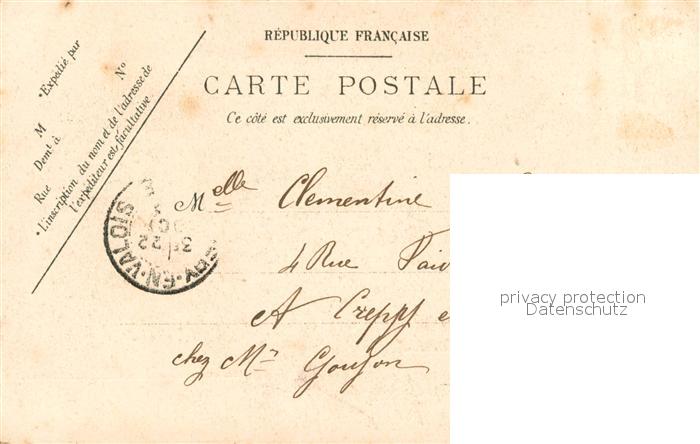 RÉPUBLIQUE FRANÇAISE
CARTE POSTALE
Ce côté est exclusivement réservé à l'adresse.
•Expédié par
M N°
Demt à
Rue
•L'inscription du nom et de l'adresse de
l'expéditeur est facultative.
Melle Clementine
4 Rue
A Crepy e
chez Mr Goujon
EN-VALOIS
22
privacy protection
Datenschutz